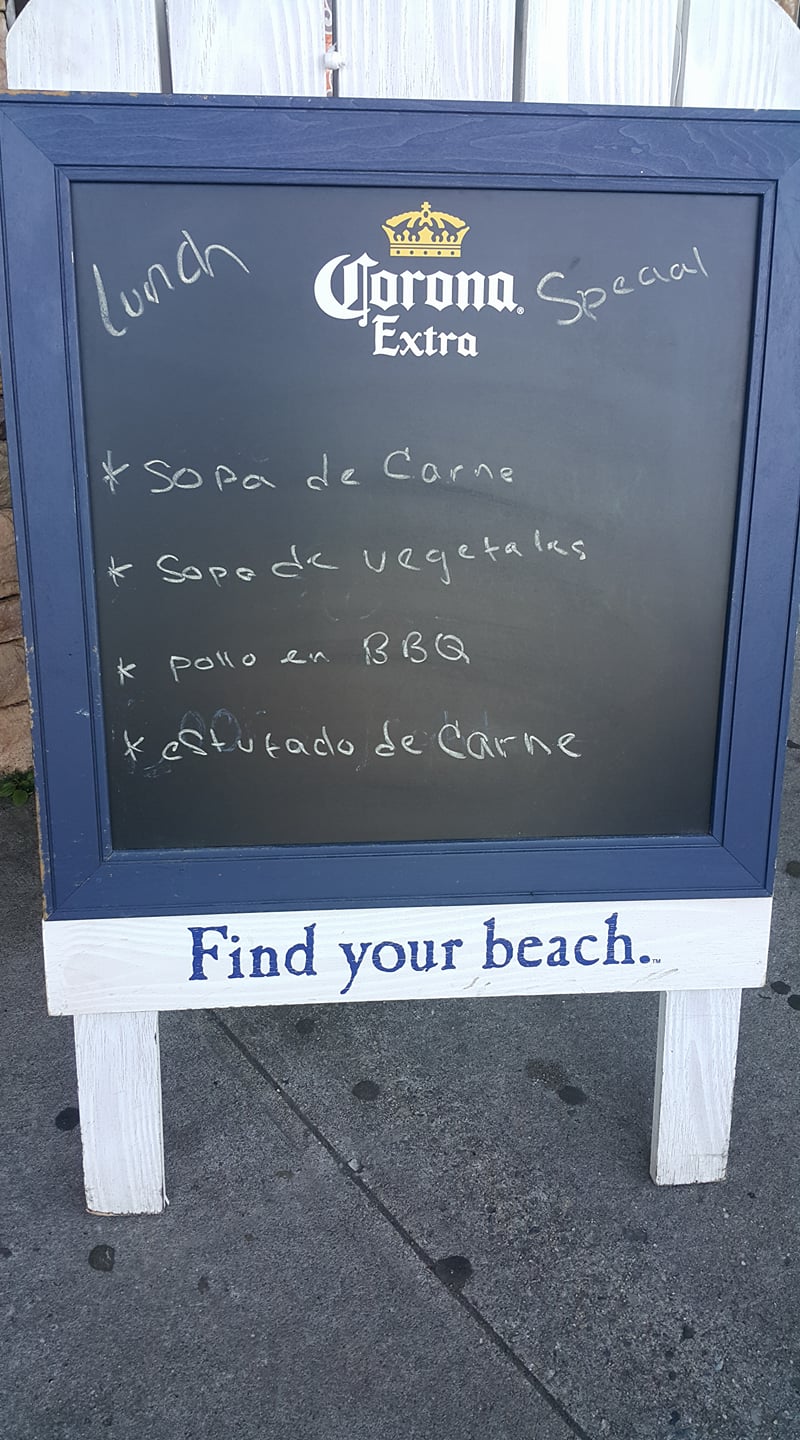 Lunch Corona® Special
Extra
* Sopa de Carne
* Sopa de vegetales
* pollo en BBQ
* estufado de Carne
Find your beach.™